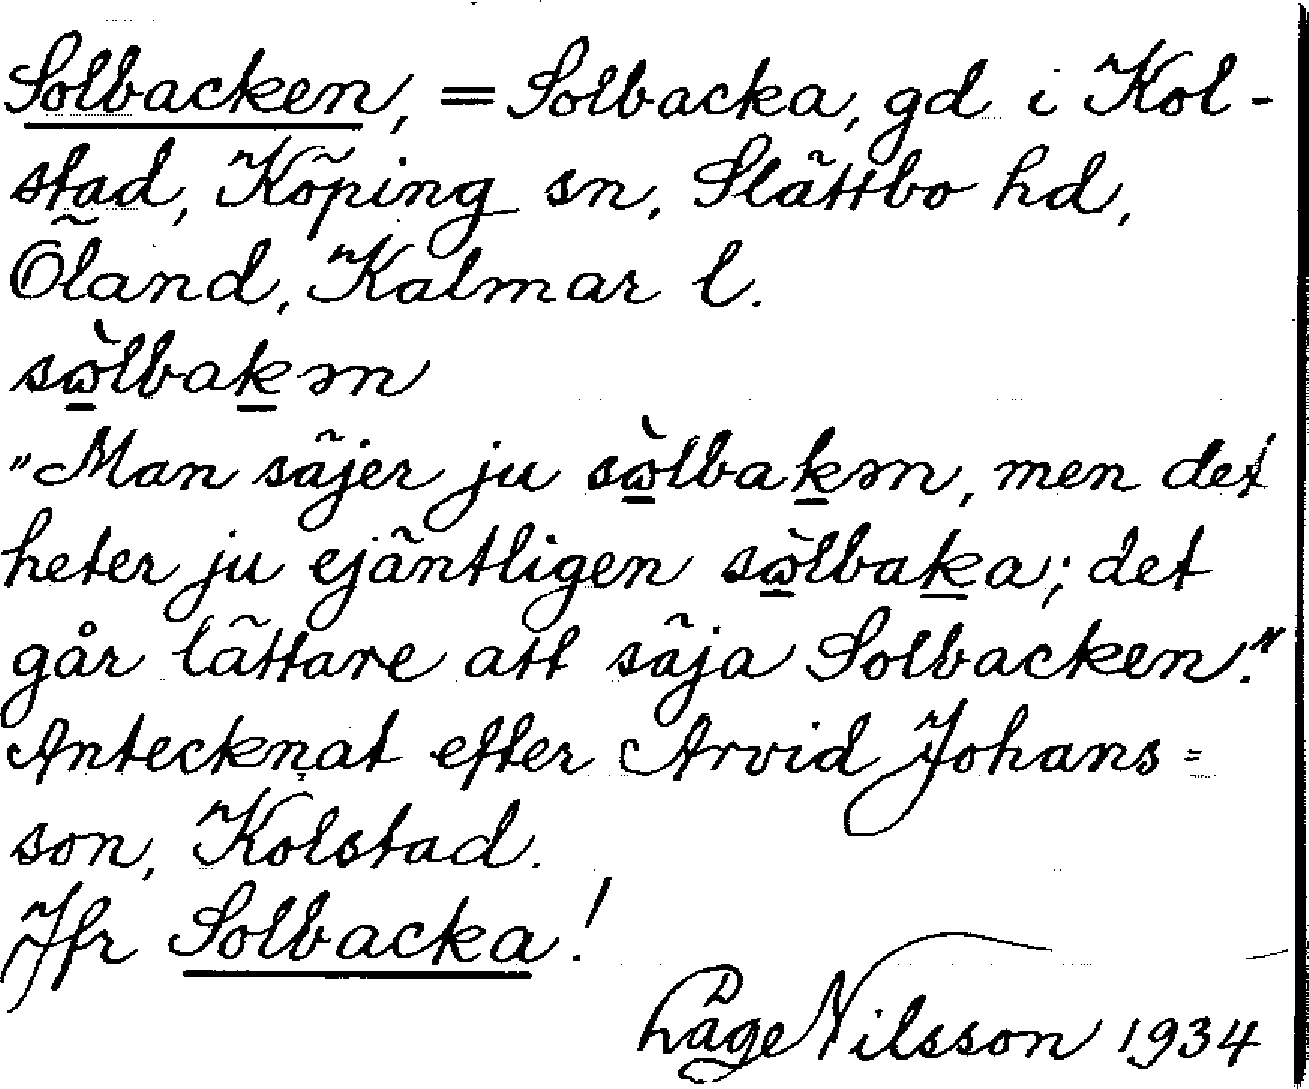 Solbacken, = Solbacka, gd i Kol-
stad, Köping sn, Slättbo hd,
Öland, Kalmar l.
sὼ̲lbak̲m
"Man säjer ju sὼ̲lbak̲m, men det
heter ju ejäntligen sὼ̲lbak̲a; det
går lättare att säja Solbacken."
Antecknat efter Arvid Johans=
son, Kolstad.
Jfr Solbacka!
Låge Nilsson 1934